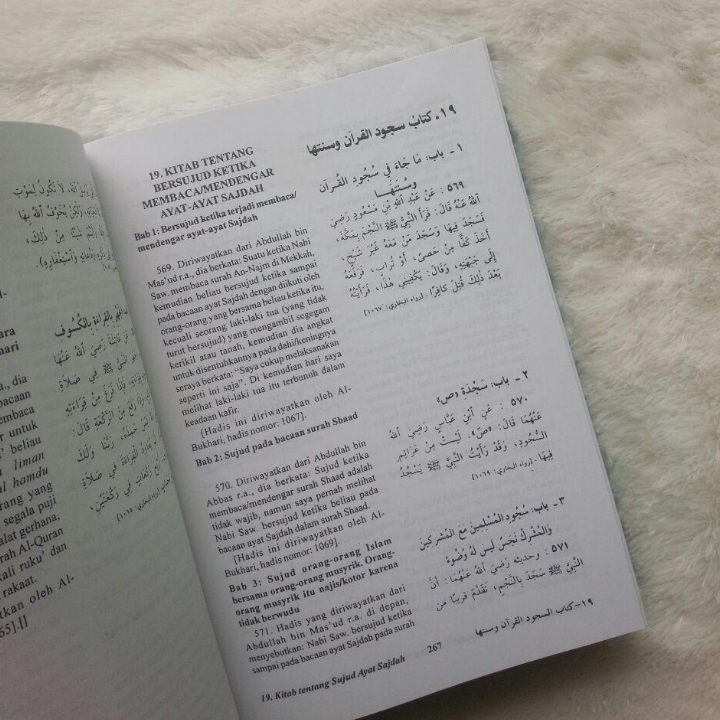 19. KITAB TENTANG
BERSUJUD KETIKA
MEMBACA/MENDENGAR
AYAT-AYAT SAJDAH
Bab 1: Bersujud ketika terjadi membaca/
mendengar ayat-ayat Sajdah
569. Diriwayatkan dari Abdullah bin
Mas'ud r.a., dia berkata: Suatu ketika Nabi
Saw. membaca surah An-Najm di Mekkah,
kemudian beliau bersujud ketika sampai
pada bacaan ayat Sajdah dengan diikuti oleh
orang-orang yang bersama beliau ketika itu,
kecuali seorang laki-laki tua (yang tidak
turut bersujud) yang mengambil segegam
kerikil atau tanah, kemudian dia angkat
untuk disentuhkannya pada dahi/keningnya
seraya berkata: "Saya cukup melaksanakan
seperti ini saja". Di kemudian hari saya
melihat laki-laki tua itu terbunuh dalam
keadaan kafir.
[Hadis ini diriwayatkan oleh Al-
Bukhari, hadis nomor: 1067].
Bab 2: Sujud pada bacaan surah Shaad
570. Diriwayatkan dari Abdullah bin
Abbas r.a., dia berkata: Sujud ketika
membaca/mendengar surah Shaad adalah
tidak wajib, namun saya pernah melihat
Nabi Saw. bersujud ketika beliau pada
bacaan ayat Sajdah dalam surah Shaad.
[Hadis ini diriwayatkan oleh Al-
Bukhari, hadis nomor: 1069].
Bab 3: Sujud orang-orang Islam
bersama orang-orang musyrik. Orang-
orang musyrik itu najis/kotor karena
tidak berwudu
571. Hadis yang diriwayatkan dari
Abdullah bin Mas'ud r.a. di depan,
menyebutkan: Nabi Saw. bersujud ketika
sampai pada bacaan ayat Sajdah pada surah
١٩. كتابُ سجود القرآن وسنتها
١ - باب: مَا جَاءَ فِي سُجُودِ القُرآنِ
وسُنَّتِهَا
٥٦٩ : عَنْ عَبْدِ اللهِ بْنِ مَسْعُودٍ رَضِيَ
اللهُ عَنْهُ قَالَ: قَرَأَ النَّبِيُّ ﷺ النَّجْمَ بِمَكَّةَ،
فَسَجَدَ فِيهَا وَسَجَدَ مَنْ مَعَهُ غَيْرَ شَيْخٍ،
أَخَذَ كَفًّا مِنْ حَصًى، أَوْ تُرَابٍ، فَرَفَعَهُ
إِلَى جَبْهَتِهِ، وَقَالَ: يَكْفِينِي هٰذَا، فَرَأَيْتُهُ
بَعْدَ ذٰلِكَ قُتِلَ كافِرًا. [رواه البخاري: ١٠٦٧]
٢ - باب: سَجْدَة «ص»
٥٧٠ : عَنِ ابْنِ عَبَّاسٍ رَضِيَ اللهُ
عَنْهُمَا قَالَ: «ص». لَيْسَتْ مِنْ عَزَائِمِ
السُّجُودِ، وَقَدْ رَأَيْتُ النَّبِيَّ ﷺ يَسْجُدُ
فِيهَا. [رواه البخاري: ١٠٦٩]
٣ - باب: سُجُود المُسْلِمِينَ مَعَ المُشْرِكِينَ
وَالمُشْرِكُ نَجَسٌ لَيسَ لَهُ وُضُوءٌ
٥٧١ : وحديثه رَضِيَ اللهُ عَنْهُمَا: أَنَّ
النَّبِيَّ ﷺ سَجَدَ بِالنَّجْمِ، تَقَدَّمَ قَرِيبًا مِنَ
19. Kitab tentang Sujud Ayat Sajdah
267
١٩- كتاب السجود القرآن وسنتها
ara
hari
a., dia
bacaan
embaca
ar untuk
beliau
liman
al hamdu
orang yang
segala puji
alat gerhana,
rah Al-Quran
kali ruku' dan
rakaat.
atkan oleh Al-
65].[]